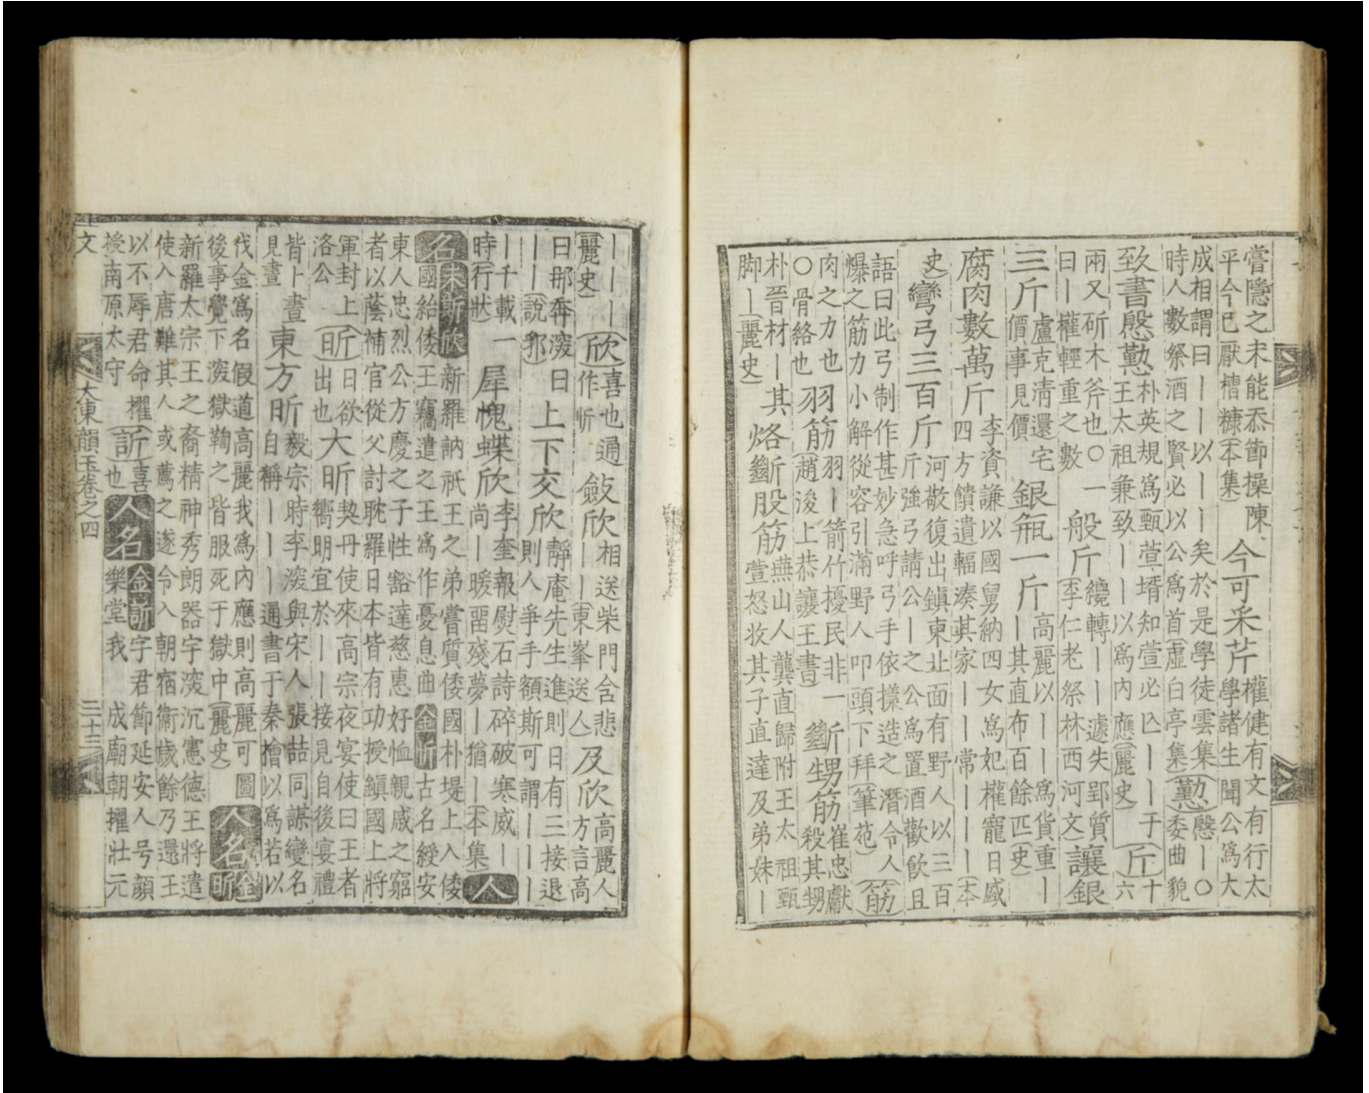 嘗隱之未能忝節操陳
平今已厭糟糠(本集)
今可采芹
權健有文有行太
學諸生聞公爲大
成相謂曰｜｜以｜｜矣於是學徒雲集
時人數祭酒之賢必以公爲首(虛白亭集)
懃
慇｜○
委曲貌
致書慇懃
朴英規爲甄萱壻知萱必亡｜｜于
王太祖兼致｜｜以爲內應(麗史)
斤
十
六
兩又斫木斧也○一
曰｜權輕重之數
般斤
纔轉｜｜遽失郢質
(李仁老祭林西河文)
讓銀
三斤
盧克淸還宅
價事見價
銀甁一斤
高麗以｜｜爲貨重｜
｜其直布百餘匹(史)
腐肉數萬斤
李資謙以國舅納四女爲妃權寵日盛
四方饋遺輻湊其家｜｜常｜｜｜｜(本
史)
彎弓三百斤
河敬復出鎭東北面有野人以三百
斤強弓請公｜之公爲置酒歡飮且
語曰此弓制作甚妙急呼弓手依㨾造之潛令人
爆之筋力小解從容引滿野人叩頭下拜(筆苑)
筋
肉之力也
○骨絡也
羽筋
羽｜箭竹擾民非一
(趙浚上恭讓王書)
斷甥筋
崔忠獻
殺其甥
朴晉材｜其
脚｜(麗史)
烙斷股筋
燕山人龔直歸附王太祖甄
萱怒收其子直達及弟妹｜
｜｜｜
(麗史)
欣
喜也通
作忻
斂欣
相送柴門含悲
｜｜(東峯送人)
及欣
高麗人
方言高
曰那奔潑曰
｜｜說郛
上下交欣
靜庵先生進則日有三接退
則人爭手額斯可謂｜｜｜｜
｜千載一
時(行狀)
犀愧蝶欣
李奎報熨石詩碎破寒威｜
尙｜暖罶殘夢｜猶｜(本集)
人
名
未斯欣
新羅訥祇王之弟嘗質倭國朴堤上入倭
國紿倭王竊遣之王爲作憂息曲
金忻
古名綬安
東人忠烈公方慶之子性豁達慈惠好恤親戚之窮
者以蔭補官從父討耽羅日本皆有功授鎭國上將
軍封上
洛公
昕
日欲
出也
大昕
契丹使來高宗夜宴使曰王者
嚮明宜於｜｜接見自後宴禮
皆卜晝
見晝
東方昕
毅宗時李深與宋人張喆同謀變名
自稱｜｜｜通書于秦檜以爲若以
伐金爲名假道高麗我爲內應則高麗可圖
後事覺下深獄鞫之皆服死于獄中(麗史)
人名
金昕
新羅太宗王之裔精神秀朗器宇深沉憲德王將遣
使入唐難其人或薦之遂令入朝宿衛歲餘乃還王
以不辱君命擢
授南原太守
訢
喜
也
人名
金訢
字君節延安人号顔
樂堂我 成廟朝擢壯元
文
大東韻玉卷之四
三十三